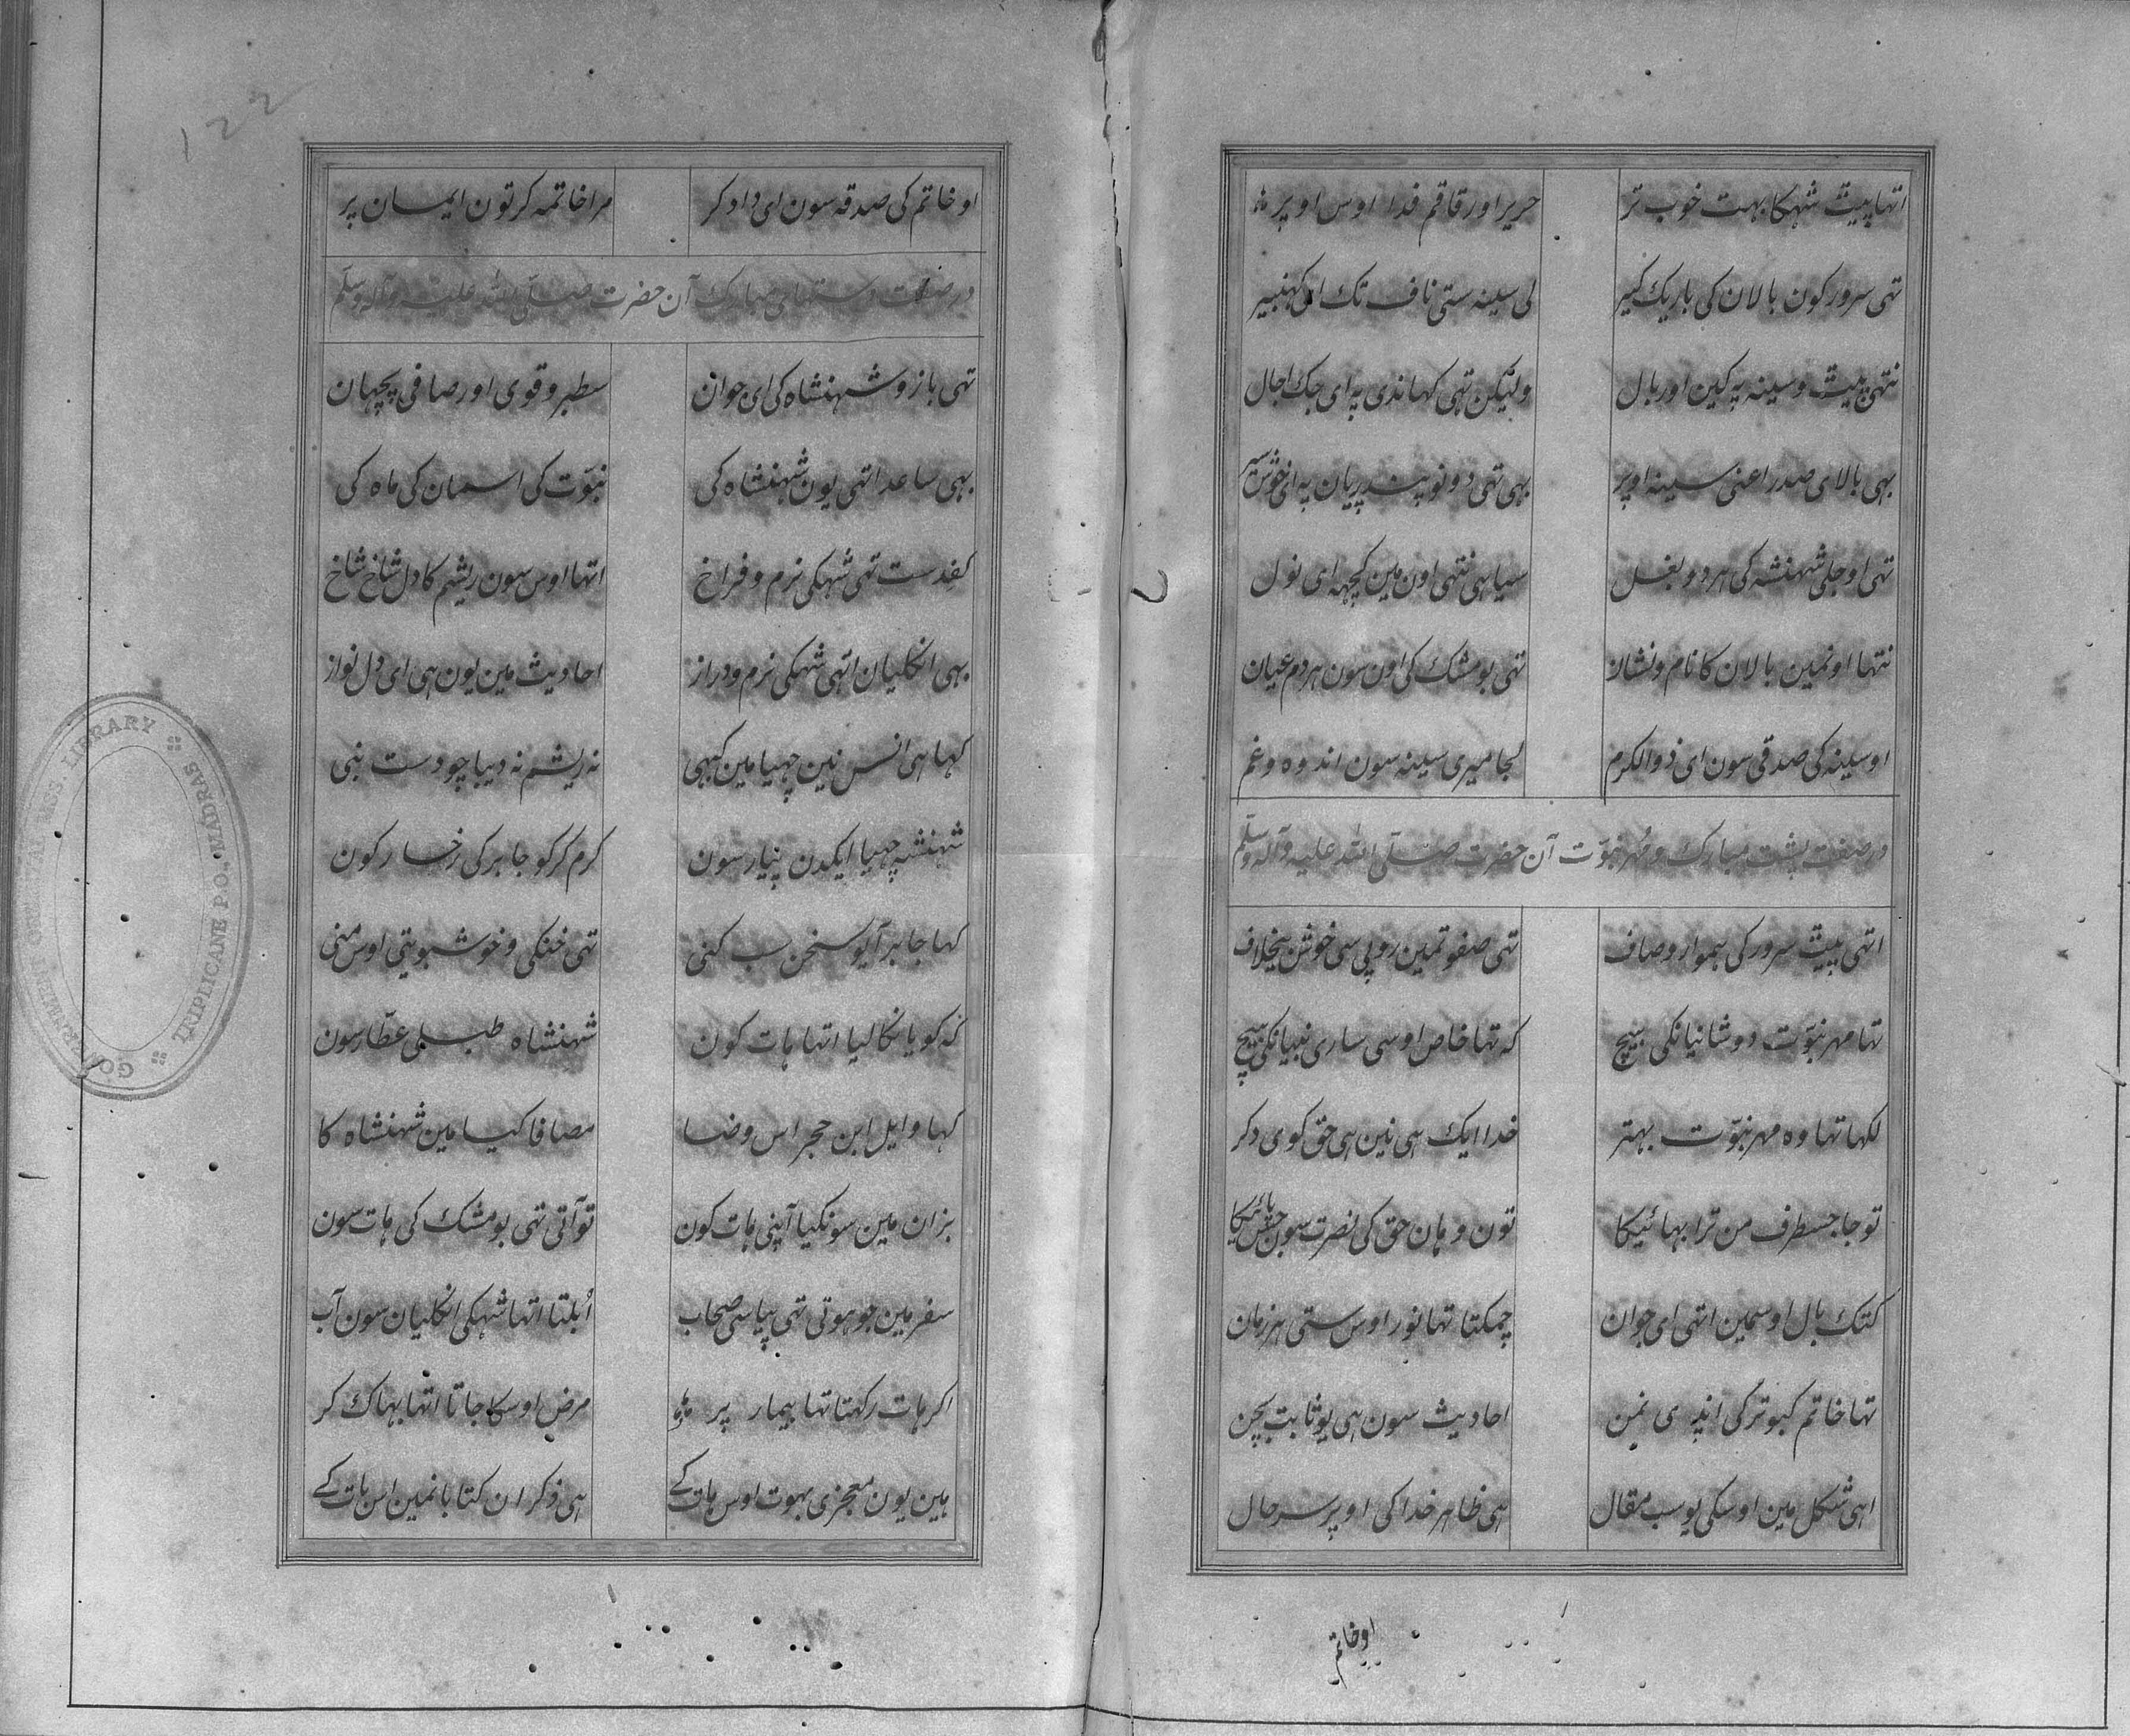 اتها پیٹ شهکا بهت خوب تر حریر اور قاقم فدا اوس اوپر
تهی سرور کون بالان کی باریك لکیر لی سینه ستی ناف تك
نتهی پیٹ و سینه په کین اور بال ولیکن تهی کهاندی په ای جك اجال
بهی بالای صدر اعنی سینه اوپر بهی تهی دونو پند ریان په ای خوش سیر
تهی اوجلی شهنشه کی هر دو بغل سیاهی نتهی اون مین کچهه ای نول
نتها اونمین بالان کا نام و نشان تهی بو مشك کی اون سون هر دم عیان
او سینه کی صدقی سون ای ذوالکرم لجا میری سینه سون اندوه و غم
در صفت پشت مبارك و مُهر نبوّت آن حضرت صلّی الله علیه وآله وسلّم
اتهی پیٹ سرور کی هموار و صاف تهی صفوتمین روپی سی خوش بیخلاف
تها مهر نبوّت دو شانیانکی بیچ که تها خاص اوسی ساری نبیانکی بیچ
لکها تها وه مهر نبوّت بهتر خدا ایك هی نین هی حق کوی دکر
تو جا جسطرف من ترا بهائیکا تون وهان حق کی نصرت سون جس پائیکا
کتك بال اوسمین اتهی ای جوان چمکتا تها نور اوس ستی هر زمان
تها خاتم کبوتر کی انڈه ی نمن احادیث سون هی یو ثابت بچن
اهی شکل مین اوسکی یو سب مقال هی ظاهر خدا کی اوپر سر حال
او خاتم
او خاتم کی صدقه سون ای دادکر مرا خاتمه کر تون ایمان پر
در صفت دستهای مبارك آن حضرت صلّی الله علیه وآله وسلّم
تهی بازو شهنشاه کی ای جوان سطبر و قوی اور صافی پچهان
بهی ساعد اتهی یون شهنشاه کی نبوّت کی اسمان کی ماه کی
کفِ دست تهی شهکی نرم و فراخ اتها اوس سون ریشم کا دل شاخ شاخ
بهی انکلیان اتهی شهکی نرم و دراز احادیث مین یون هی ای دل نواز
کها هی انس نین چهیا مین کبهی نه ریشم نه دیبا چو دست نبی
شهنشه چهیا ایکدن پیار سون کرم کر کو جابر کی رخسار کون
کها جابر آیو سخن سب کنی تهی خنکی و خوشبویتی اوس منی
که کویا نکالیا اتها هات کون شهنشاه طبلی عطّار سون
کها وایل ابن حجر اس وضا مصافا کیا مین شهنشاه کا
بزان مین سونکیا آپنی هات کون تو آتی تهی بو مشك کی هات سون
سفر مین جو هوتی تهی پیاسی صحاب اُبلتا اتها شهکی انکلیان سون آب
اکر هات رکهتا تها بیمار پر مرض اوسکا جاتا اتها بهاك کر
هین یون معجزی بهوت اوس هات کے هی ذکر ان کتابانمین اس بات کے
122
GOVERNMENT ORIENTAL MSS. LIBRARY
TRIPLICANE P.O., MADRAS